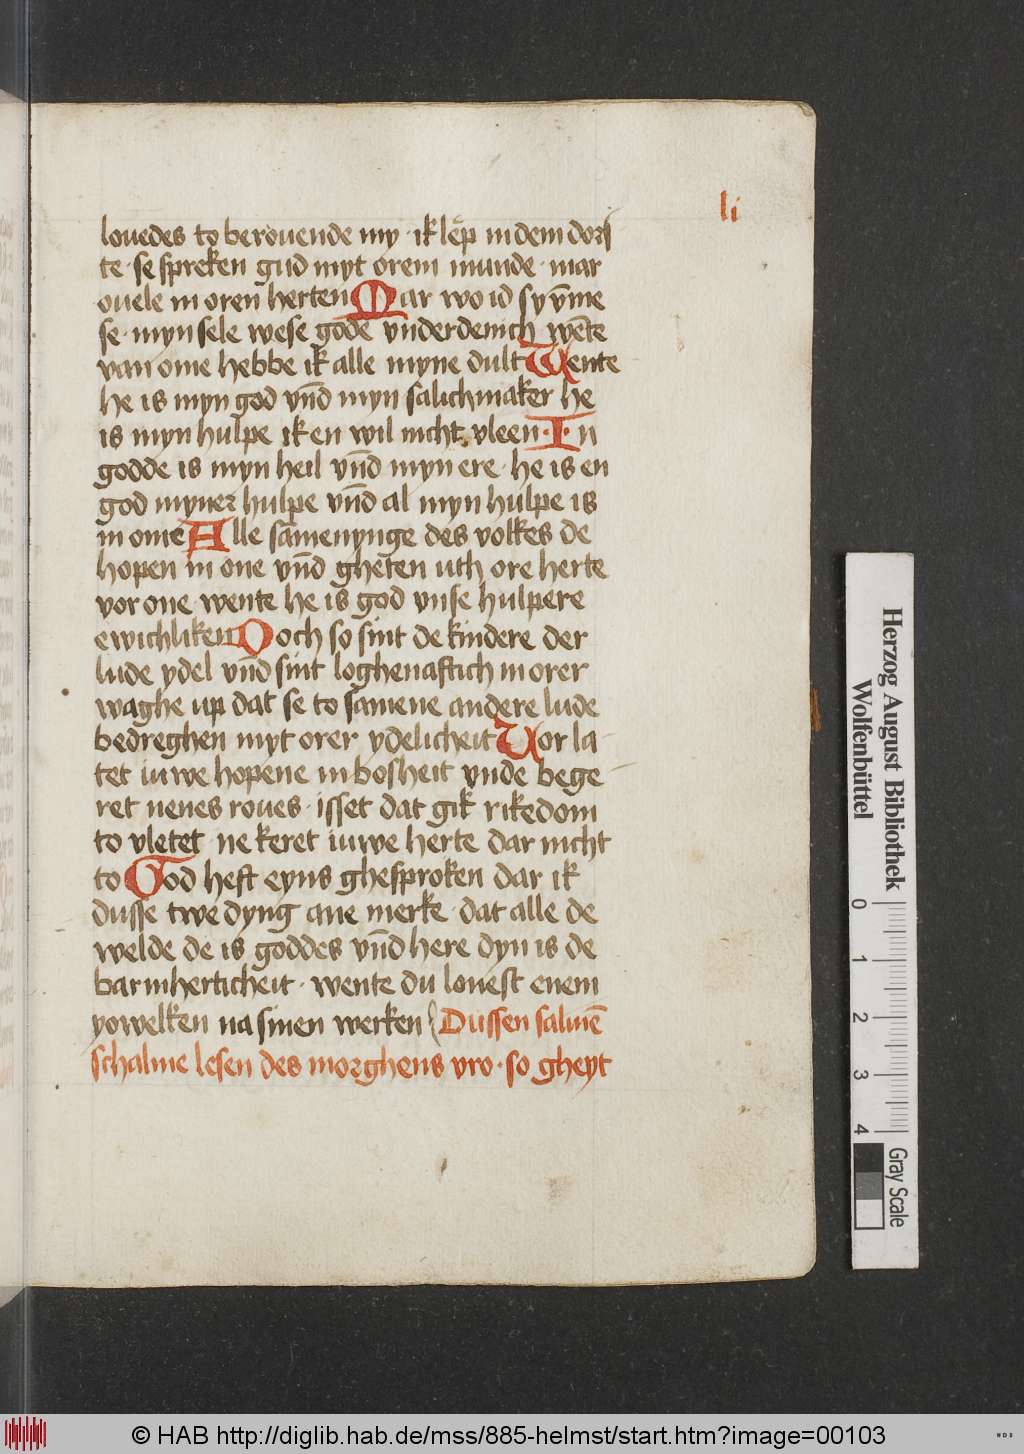 li
louedes to berouende my · ik lep in dem dors
te · se spreken gud myt orem munde · mar
ouele in oren herten Mar wo id sy vm̄e
se · myn sele wese gode vnderdenich wēte
van ome hebbe ik alle myne dult Wente
he is myn god vn̄d myn salichmaker he
is myn hulpe ik en wil nicht vleen · I · n
godde is myn heil vn̄d myn ere · he is en
god myner hulpe vn̄d al myn hulpe is
in ome Alle samenynge des volkes de
hopen in one vn̄d gheten uth ore herte
vor one wente he is god vnse hulpere
ewichliken Doch so sint de kindere der
lude ydel vn̄d sint loghenaftich in orer
waghe up dat se to samene andere lude
bedreghen myt orer ydelicheit Vor la
tet iuwe hopene in bosheit vnde bege
ret nenes roues · isset dat gik rikedom
to vletet ne keret iuwe herte dar nicht
to God heft eyns ghesproken dar ik
dusse twe dyng ane merke · dat alle de
welde de is goddes vn̄d here dyn is de
barmherticheit · wente du lonest enem
yowelken na sinen werken Dussen salmē
schalme lesen des morghens vro · so gheyt
Herzog August Bibliothek
Wolfenbüttel
0 1 2 3 4
Gray Scale
© HAB http://diglib.hab.de/mss/885-helmst/start.htm?image=00103